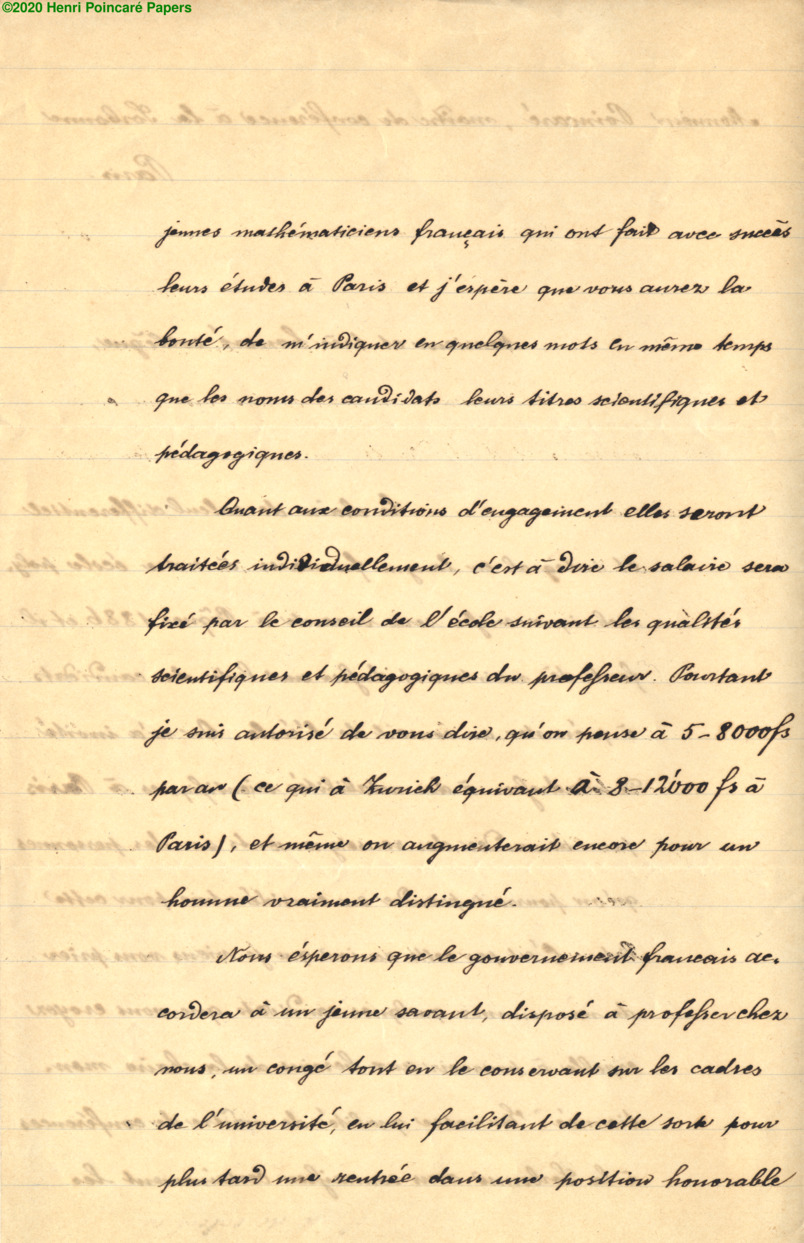 ©2020 Henri Poincaré Papers
jeunes mathématiciens français qui ont fait avec succès
leurs études à Paris et j'espère que vous aurez la
bonté, de m'indiquer en quelques mots en même temps
que les noms des candidats leurs titres scientifiques et
pédagogiques.
Quant aux conditions d'engagement elles seront
traitées individuellement, c'est à dire le salaire sera
fixé par le conseil de l'école suivant les qualités
scientifiques et pédagogiques du professeur. Pourtant
je suis autorisé de vous dire, qu'on pense à 5–8000 fs
par an (ce qui à Zurich équivaut à 8–12'000 fs à
Paris), et même on augmenterait encore pour un
homme vraiment distingué.
Nous ésperons que le gouvernement francais ac-
cordera à un jeune savant, disposé à professer chez
nous, un congé tout en le conservant sur les cadres
de l'université, en lui facilitant de cette sorte pour
plus tard une rentrée dans une position honorable